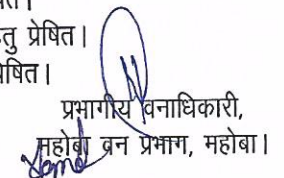 तु प्रेषित।
षित।
प्रभागीय वनाधिकारी,
महोबा वन प्रभाग, महोबा।